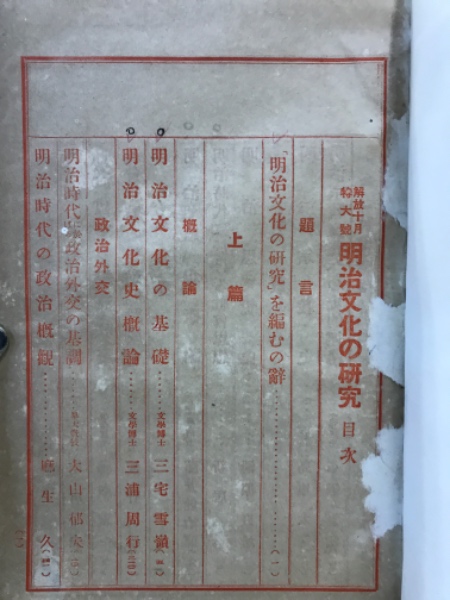 解放十月特大號 明治文化の研究 目次
題言
「明治文化の研究」を編むの辭……(一)
上篇
概論
明治文化の基礎……文學博士 三宅雪嶺
明治文化史概論……文學博士 三浦周行
政治外交
明治時代 政治外交の基調…… 大山郁夫
明治時代の政治概觀……麻生久